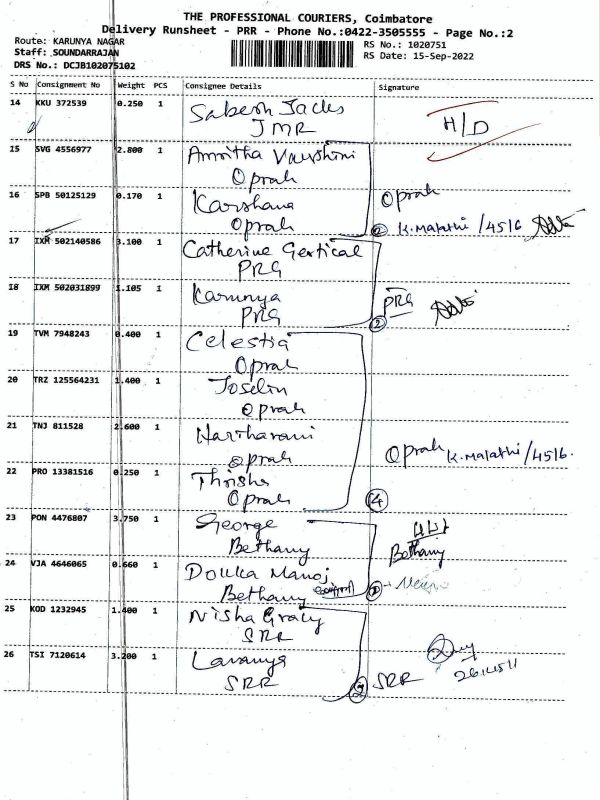 THE PROFESSIONAL COURIERS, Coimbatore
Delivery Runsheet - PRR - Phone No.:0422-3505555 - Page No.:2
Route: KARUNYA NAGAR
RS No.: 1020751
Staff: SOUNDARRAJAN
RS Date: 15-Sep-2022
DRS No.: DCJB102075102
S No Consignment No Weight PCS Consignee Details Signature
14 KKU 372539 0.250 1
JMR
H/D
15 SVG 4556977 2.800 1 Amritha Varshini
Oprah
16 SPB 50125129 0.170 1 Karshana Oprah
Oprah
② K.Malathi /4516
17 IXM 502140586 3.100 1 Catherine Gertical
PRG
18 IXM 502031899 1.105 1 Karunya PRG
PRG
②
19 TVM 7948243 0.400 1 Celestia
Oprah
20 TRZ 125564231 1.400 1 Joselin
Oprah
21 TNJ 811528 2.600 1 Hariharani
Oprah
Oprah K.Malathi/4516.
22 PRO 13381516 0.250 1 Thrisha
Oprah
④
23 PON 4476807 3.750 1 George
Bethany
Bethany
24 VJA 4646065 0.660 1 Manoj
Bethany
25 KOD 1232945 1.400 1 Nisha Gracy
SRR
26 TSI 7120614 3.200 1 Lavanya
SRR
② SRR